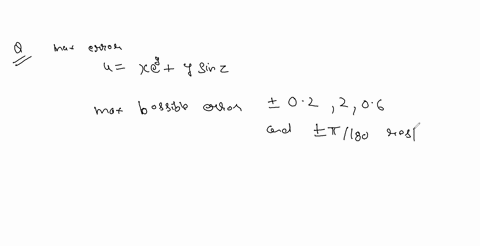 Q max error
u = xe^y + y sin z
max possible error ± 0.2 , 2 , 0.6
and ± π/180 resp